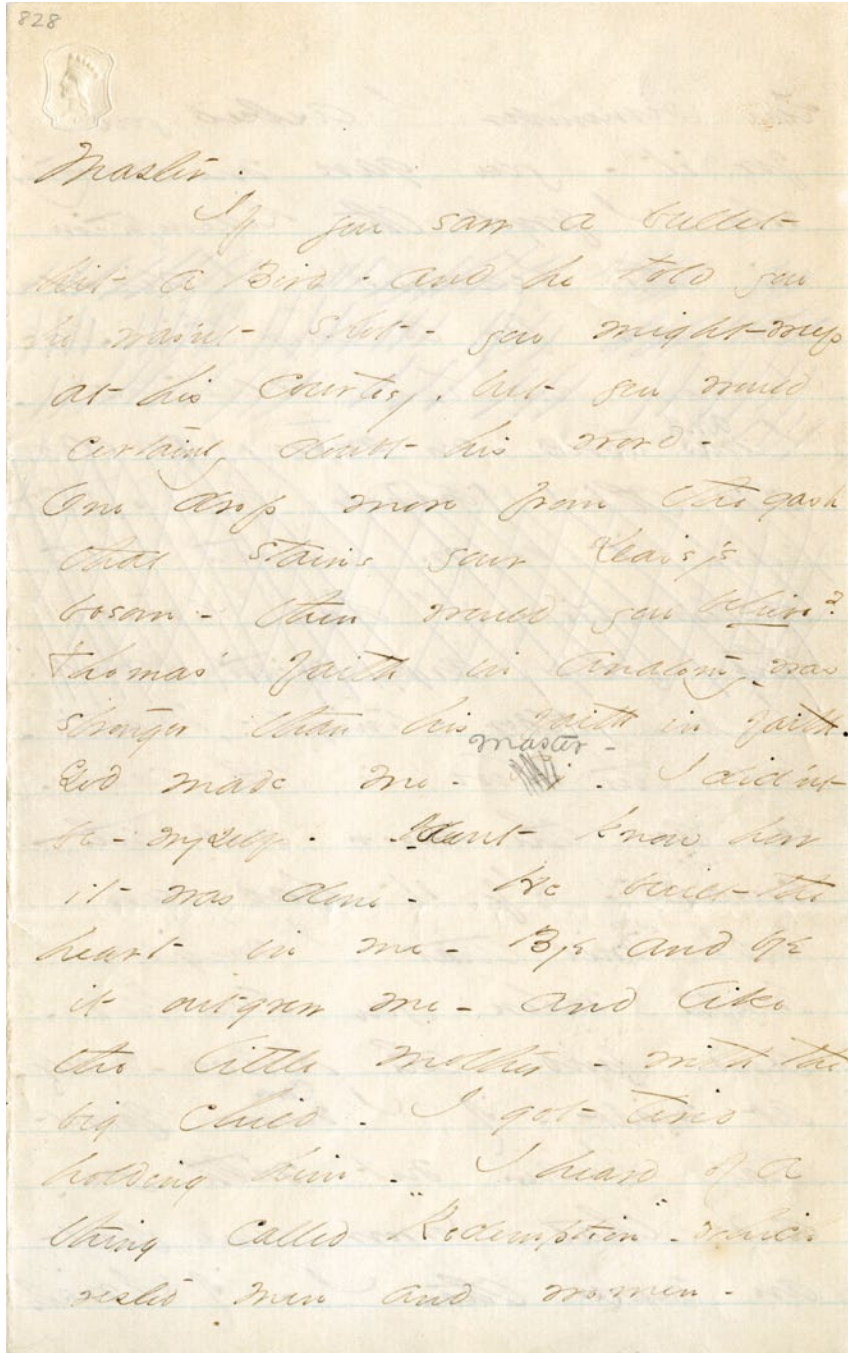 828
Master.
If you saw a bullet
hit a Bird - and he told you
he was'nt shot - you might weep
at his courtesy, but you would
certainly doubt his word -
One drop more from the gash
that stains your Daisy's
bosom - then would you believe?
Thomas' faith in Anatomy, was
stronger than his faith in faith.
God made me - Master - . I did'nt
be - myself. I dont know how
it was done - He built the
heart in me - Bye and bye
it outgrew me - and like
the little mother - with the
big child - I got tired
holding him - I heard of a
thing called "Redemption" - which
rested men and women -